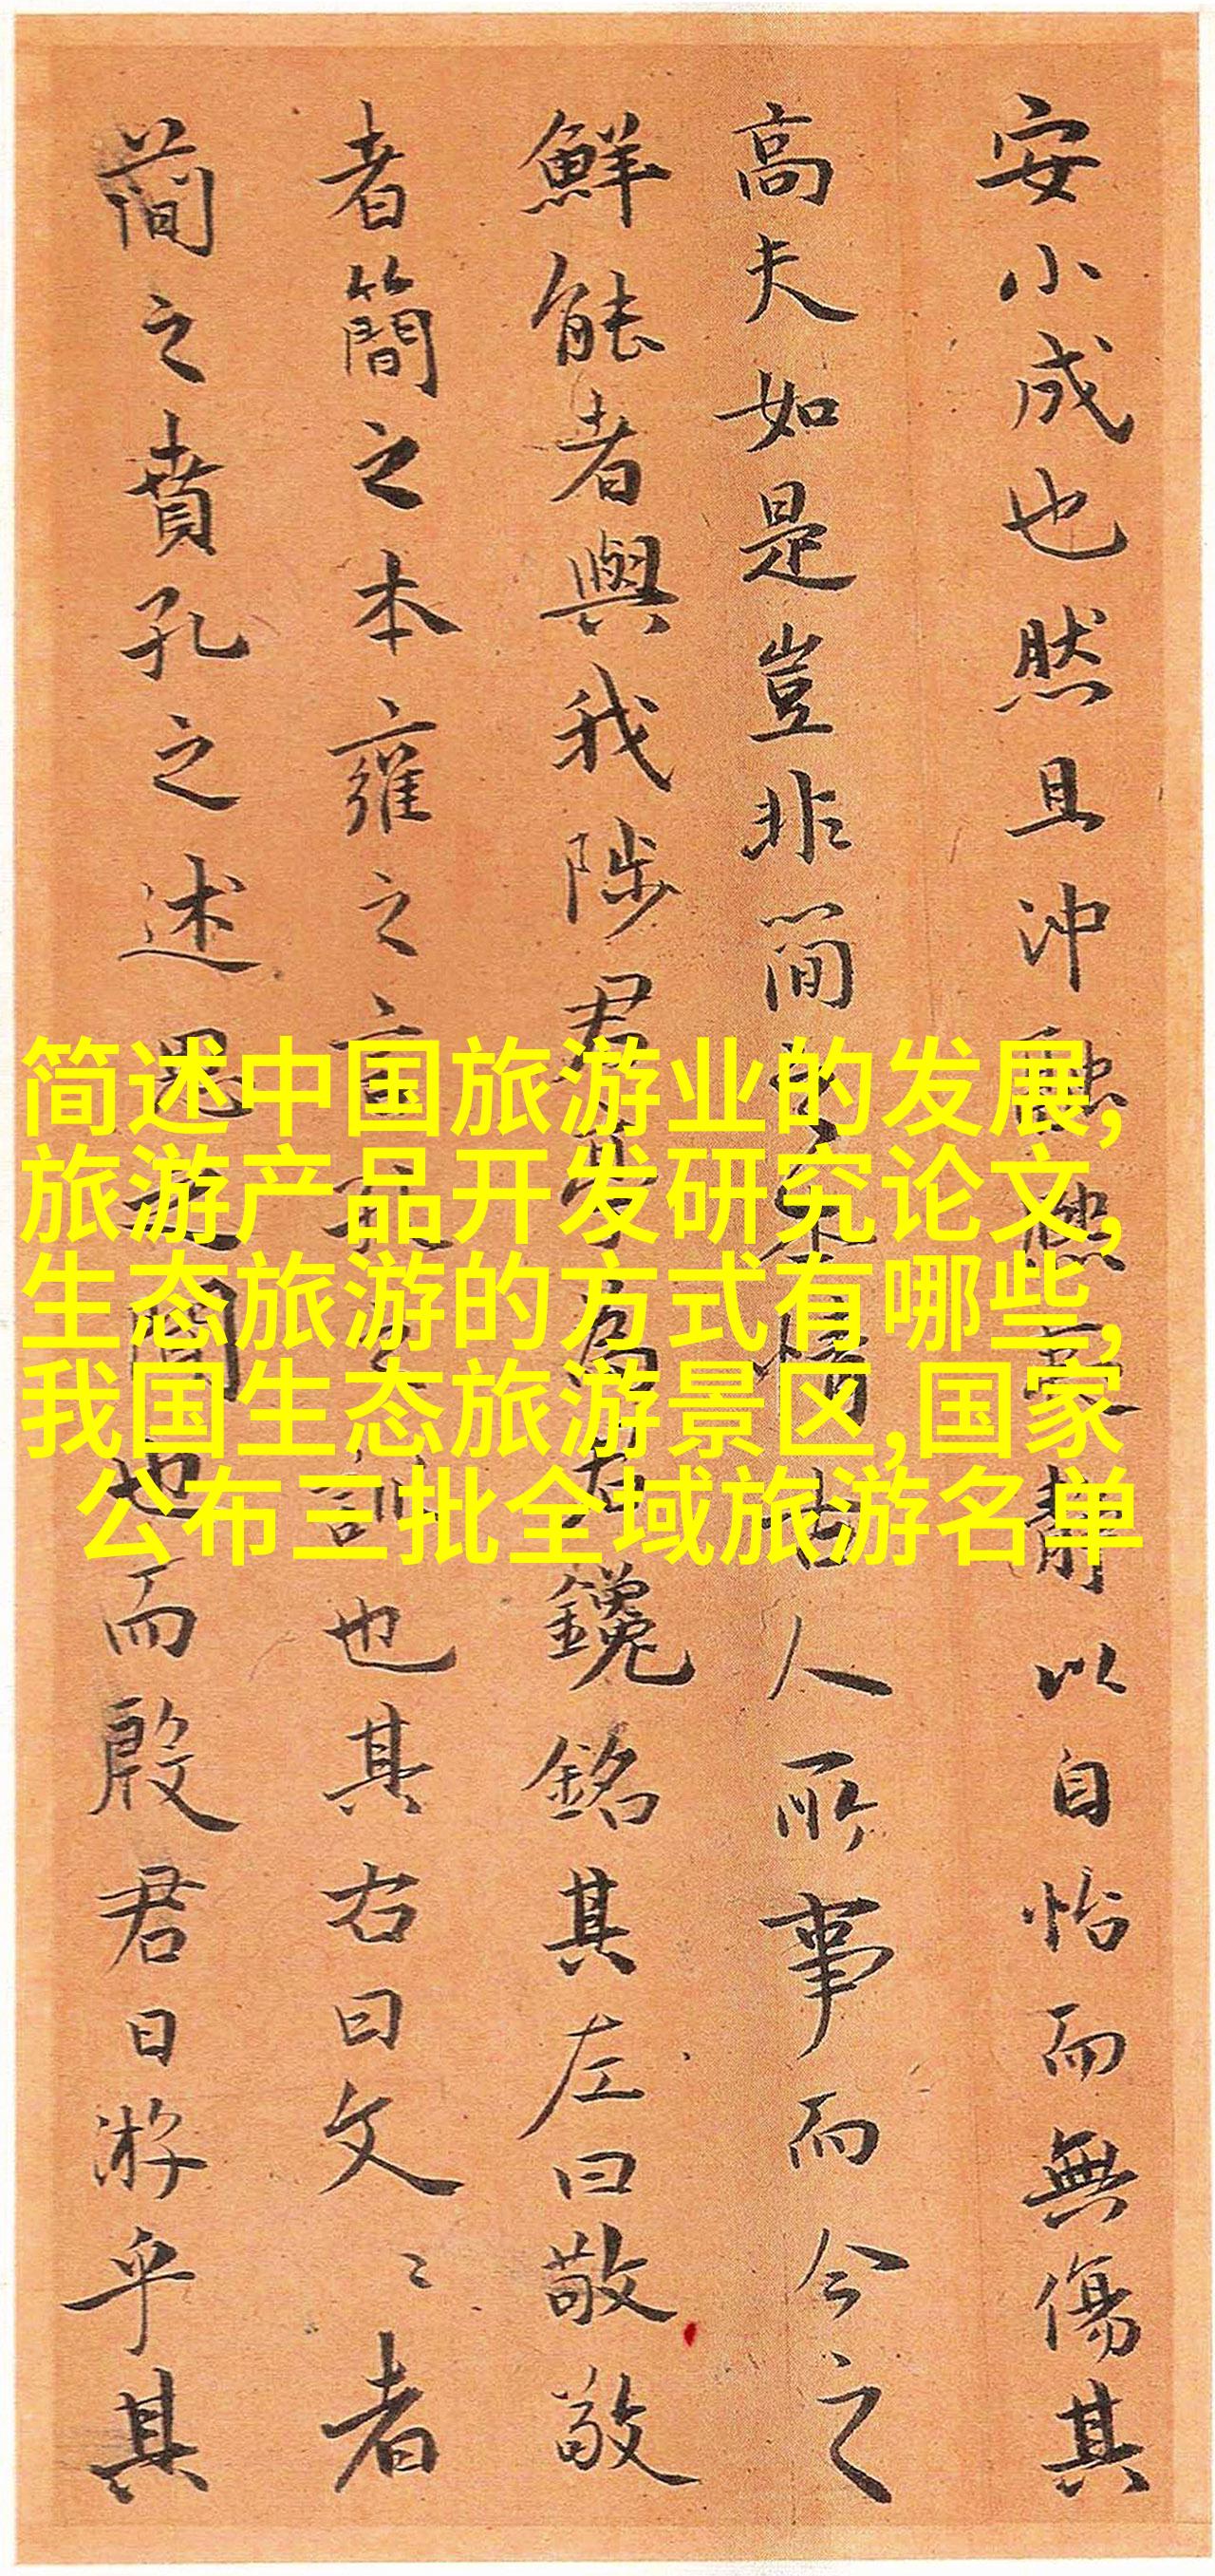 安小成也然且沖融靜以自怡而無傷其
高夫如是豈非簡之情古人所事而今之
鮮能者與我陟君爲右鑱銘其左曰敬敬
者簡之本雍之言訓也其右曰文〻者
簡之賁孔之述聞也而殷君日游乎其
简述中国旅游业的发展,
旅游产品开发研究论文,
生态旅游的方式有哪些,
我国生态旅游景区,国家
公布三批全域旅游名单